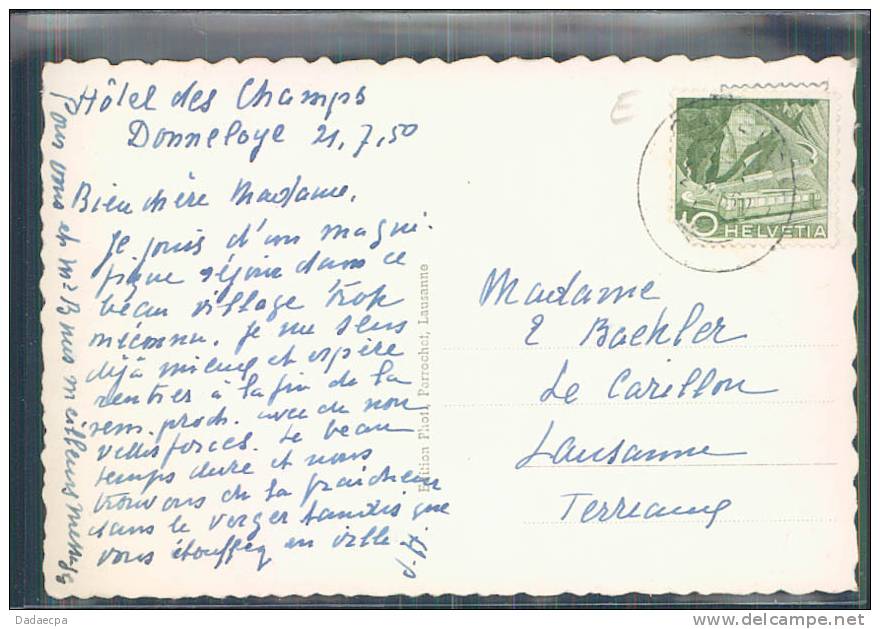 Hôtel des Champs
Donneloye 21.7.50
Bien chère Madame,
Je jouis d'un magni-
fique séjour dans ce
beau village trop
méconnu. Je me sens
déjà mieux et espère
rentrer à la fin de la
sem. proch. avec de nou
velles forces. Le beau
temps dure et nous
trouvons de la fraîcheur
dans le verger tandis que
vous étouffez en ville.
Pour vous et
nos meilleurs messages
Edition Phot. Perrochet, Lausanne
E
HELVETIA
Madame
E Baehler
Le Carillon
Lausanne
Terreaux
Dadaecpa
www.delcampe.net